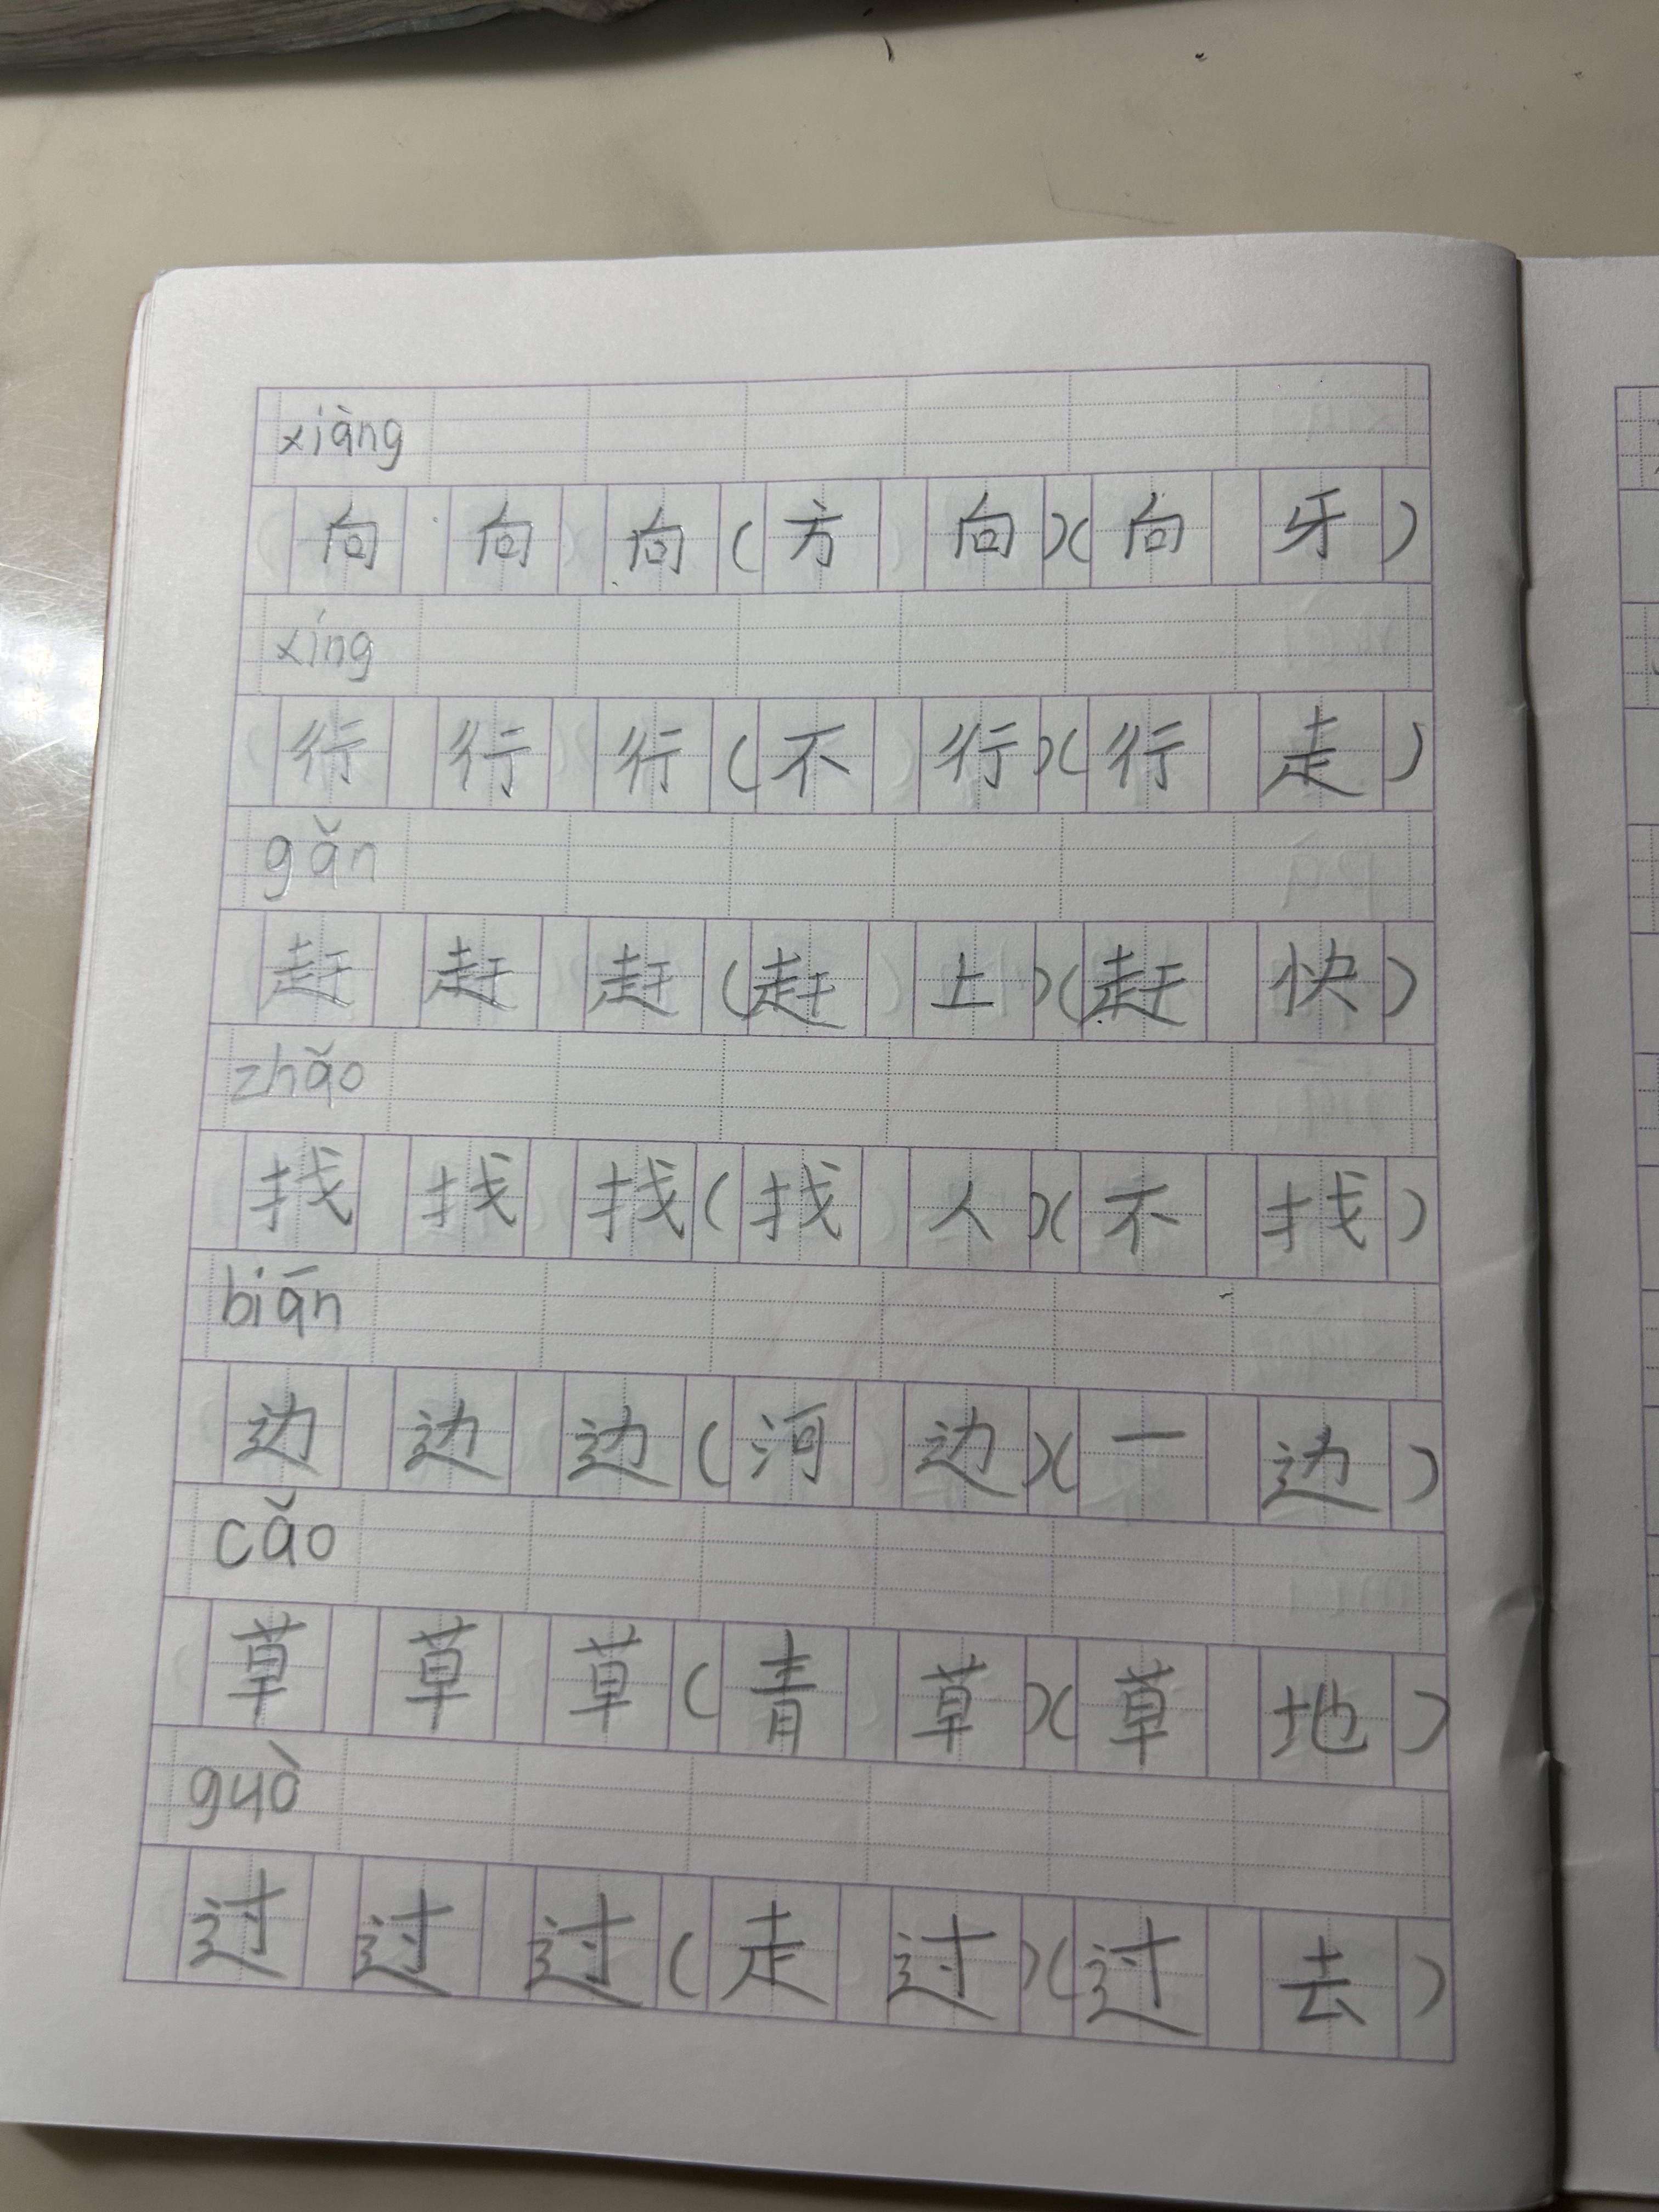 xiàng
向 向 向 (方 向)(向 牙)
xíng
行 行 行 (不 行)(行 走)
gǎn
赶 赶 赶 (赶 上)(赶 快)
zhǎo
找 找 找 (找 人)(不 找)
biān
边 边 边 (河 边)(一 边)
cǎo
草 草 草 (青 草)(草 地)
guò
过 过 过 (走 过)(过 去)